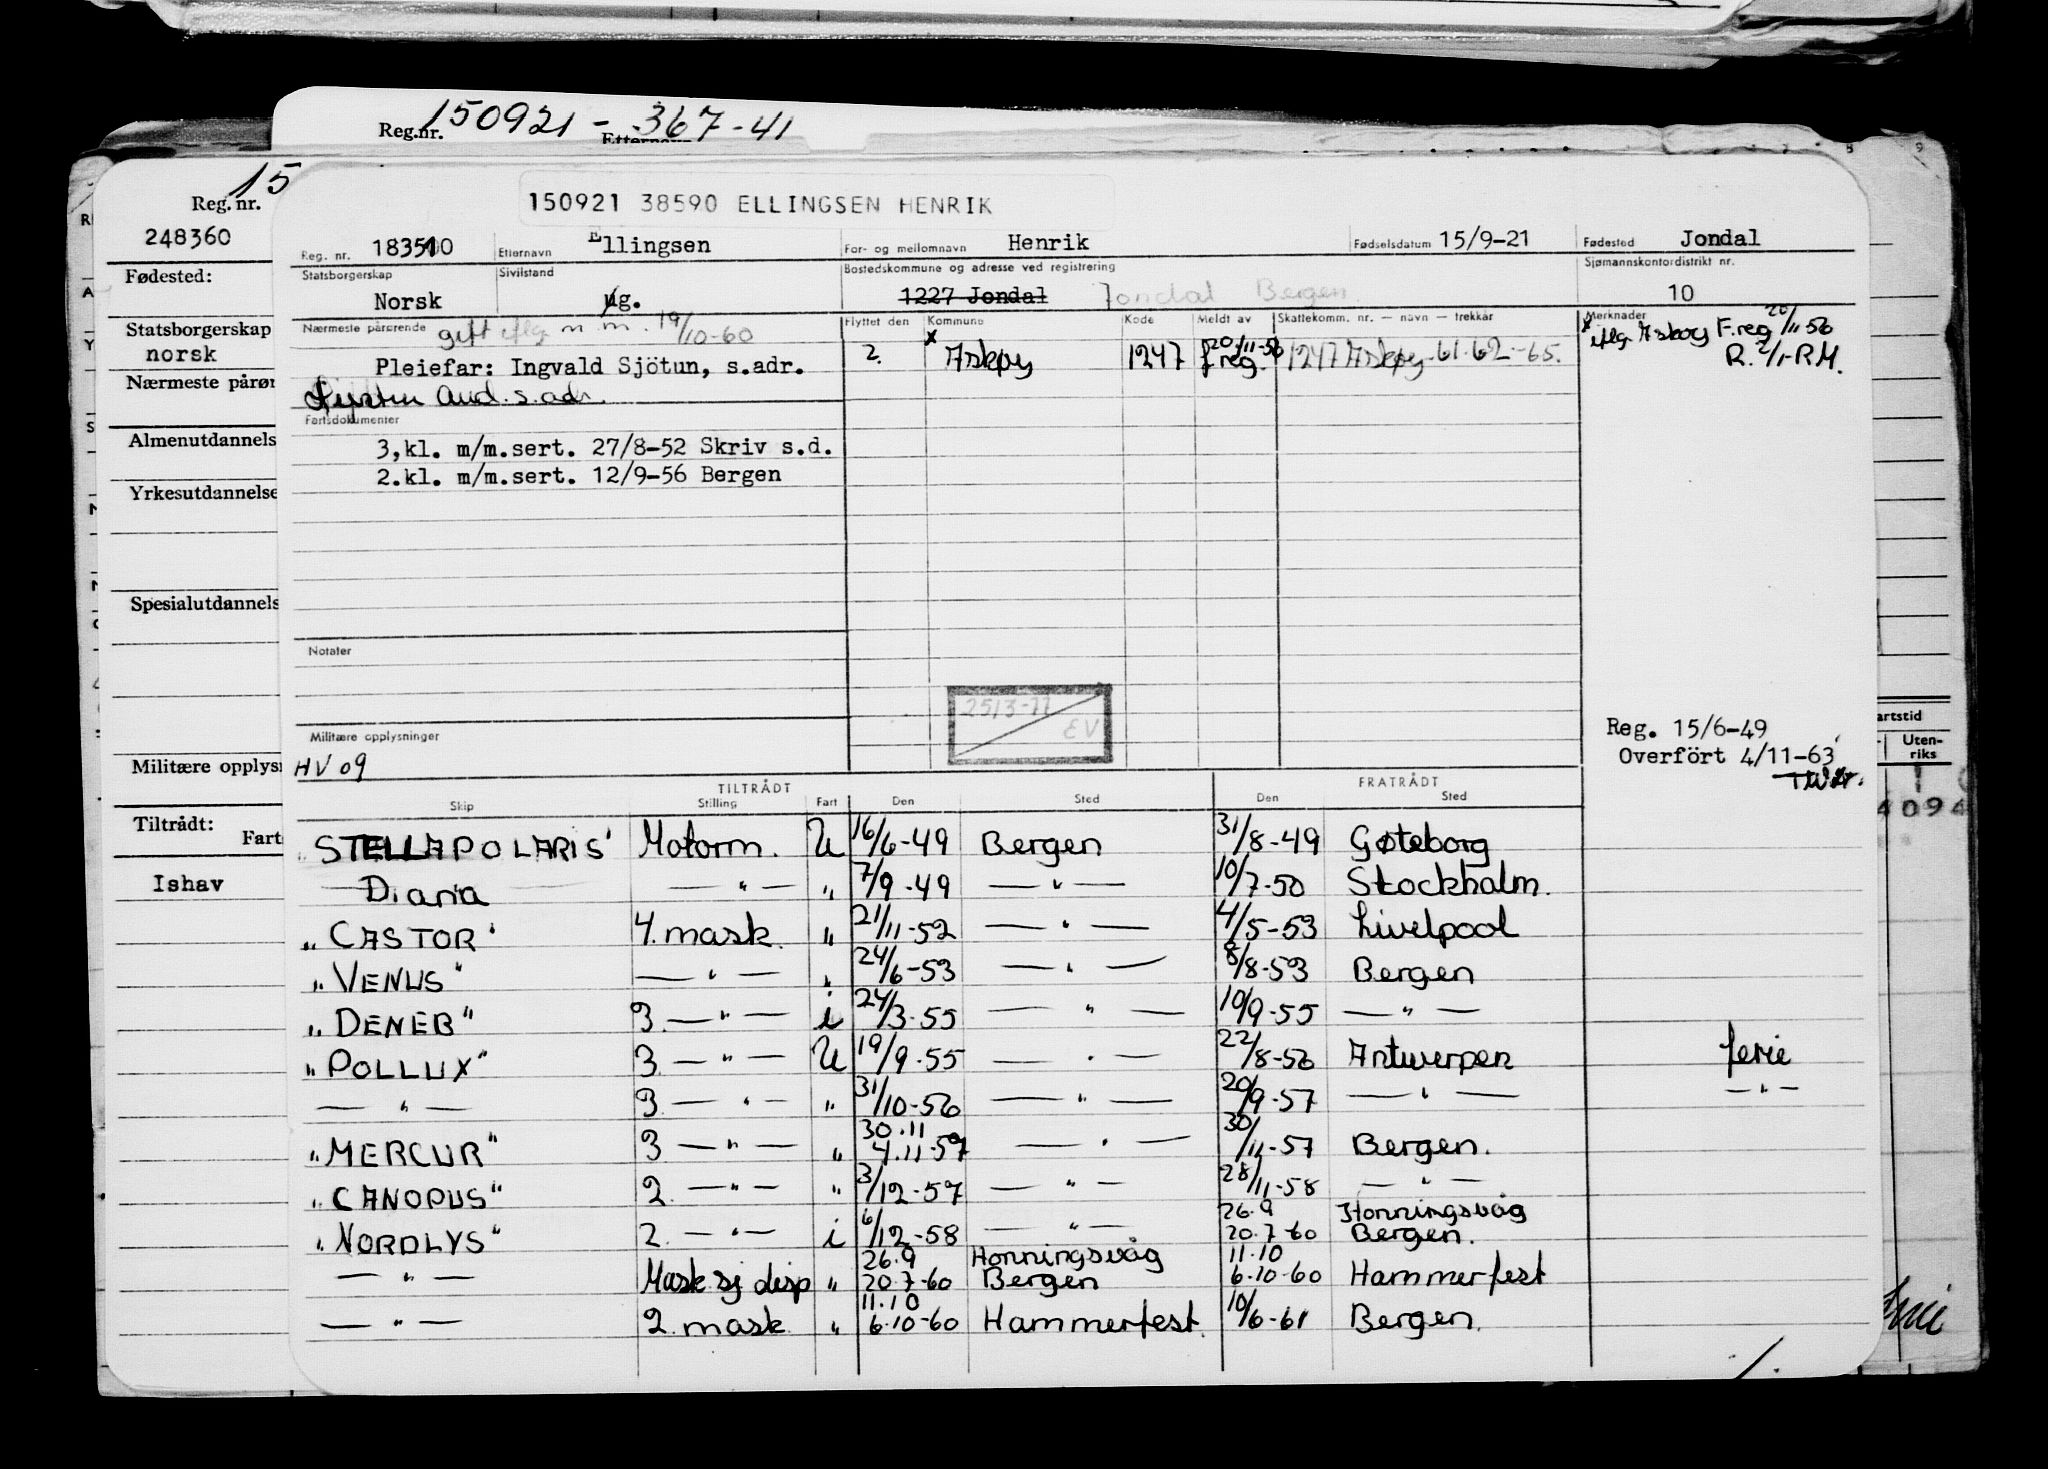 Reg.nr. 150921 - 367-41
Etternavn
15
Reg. nr.
248360
Fødested:
Statsborgerskap
norsk
Nærmeste pårør
Almenutdannels
Yrkesutdannelse
Spesialutdannels
Militære opplysr
Tiltrådt:
Fart
Ishav
150921 38590 ELLINGSEN HENRIK
Reg. nr. 183510 Etternavn Ellingsen For- og mellomnavn Henrik Fødselsdatum 15/9-21 Fødested Jondal
Statsborgerskap Sivilstand Bostedskommune og adresse ved registrering Sjømannskontordistrikt nr.
Norsk ug. 1227 Jondal Jondal Bergen 10
Nærmeste pårørende gift eflg n.m. 19/10-60 Flyttet den Kommune Kode Meldt av Skattekomm. nr. — navn — trekkår Merknader
x eflg Askøy F.reg 20/11-56
Pleiefar: Ingvald Sjötun, s.adr. 2. x Askøy 1247 20/11-56 f.reg. 1247 Askøy-61-62-65. R. 2/1-RM.
s.adr.
Fartsdokumenter
3,kl. m/m.sert. 27/8-52 Skriv s.d.
2.kl. m/m.sert. 12/9-56 Bergen
Notater
25/3-77
EV
Militære opplysninger
HV 09
Reg. 15/6-49
Overfört 4/11-63
TILTRÅDT FRATRÅDT
Skip Stilling Fart Den Sted Den Sted
STELLAPOLARIS" Motorm. U 16/6-49 Bergen 31/8-49 Gøteborg
Diana — " — " 7/9-49 — " — 10/7-50 Stockholm.
"CASTOR" 4. mask. " 21/11-52 — " — 4/5-53 Livelpool
"VENUS" — " — " 24/6-53 — " — 8/8-53 Bergen
"DENEB" 3. — " — i 24/3-55 — " — 10/9-55 — " —
"POLLUX" 3. — " — U 19/9-55 — " — 22/8-56 Antwerpen ferie
— " — 3. — " — " 31/10-56 — " — 20/9-57 — " — — " —
"MERCUR" 3 — " — " 30.11 4.11-57 — " — 30/11-57 Bergen.
"CANOPUS" 2. — " — " 3/12-57 — " — 28/11-58 — " —
"NORDLYS" 2. — " — i 6/12-58 — " — 26.9 20.7-60 Honningsvåg Bergen.
— " — Mask sj disp " 26.9 20.7-60 Honningsvåg Bergen 11.10 6.10-60 Hammerfest
— " — 2. mask " 11.10 6.10-60 Hammerfest. 10/6-61 Bergen.
artstid
Uten-
riks
4094